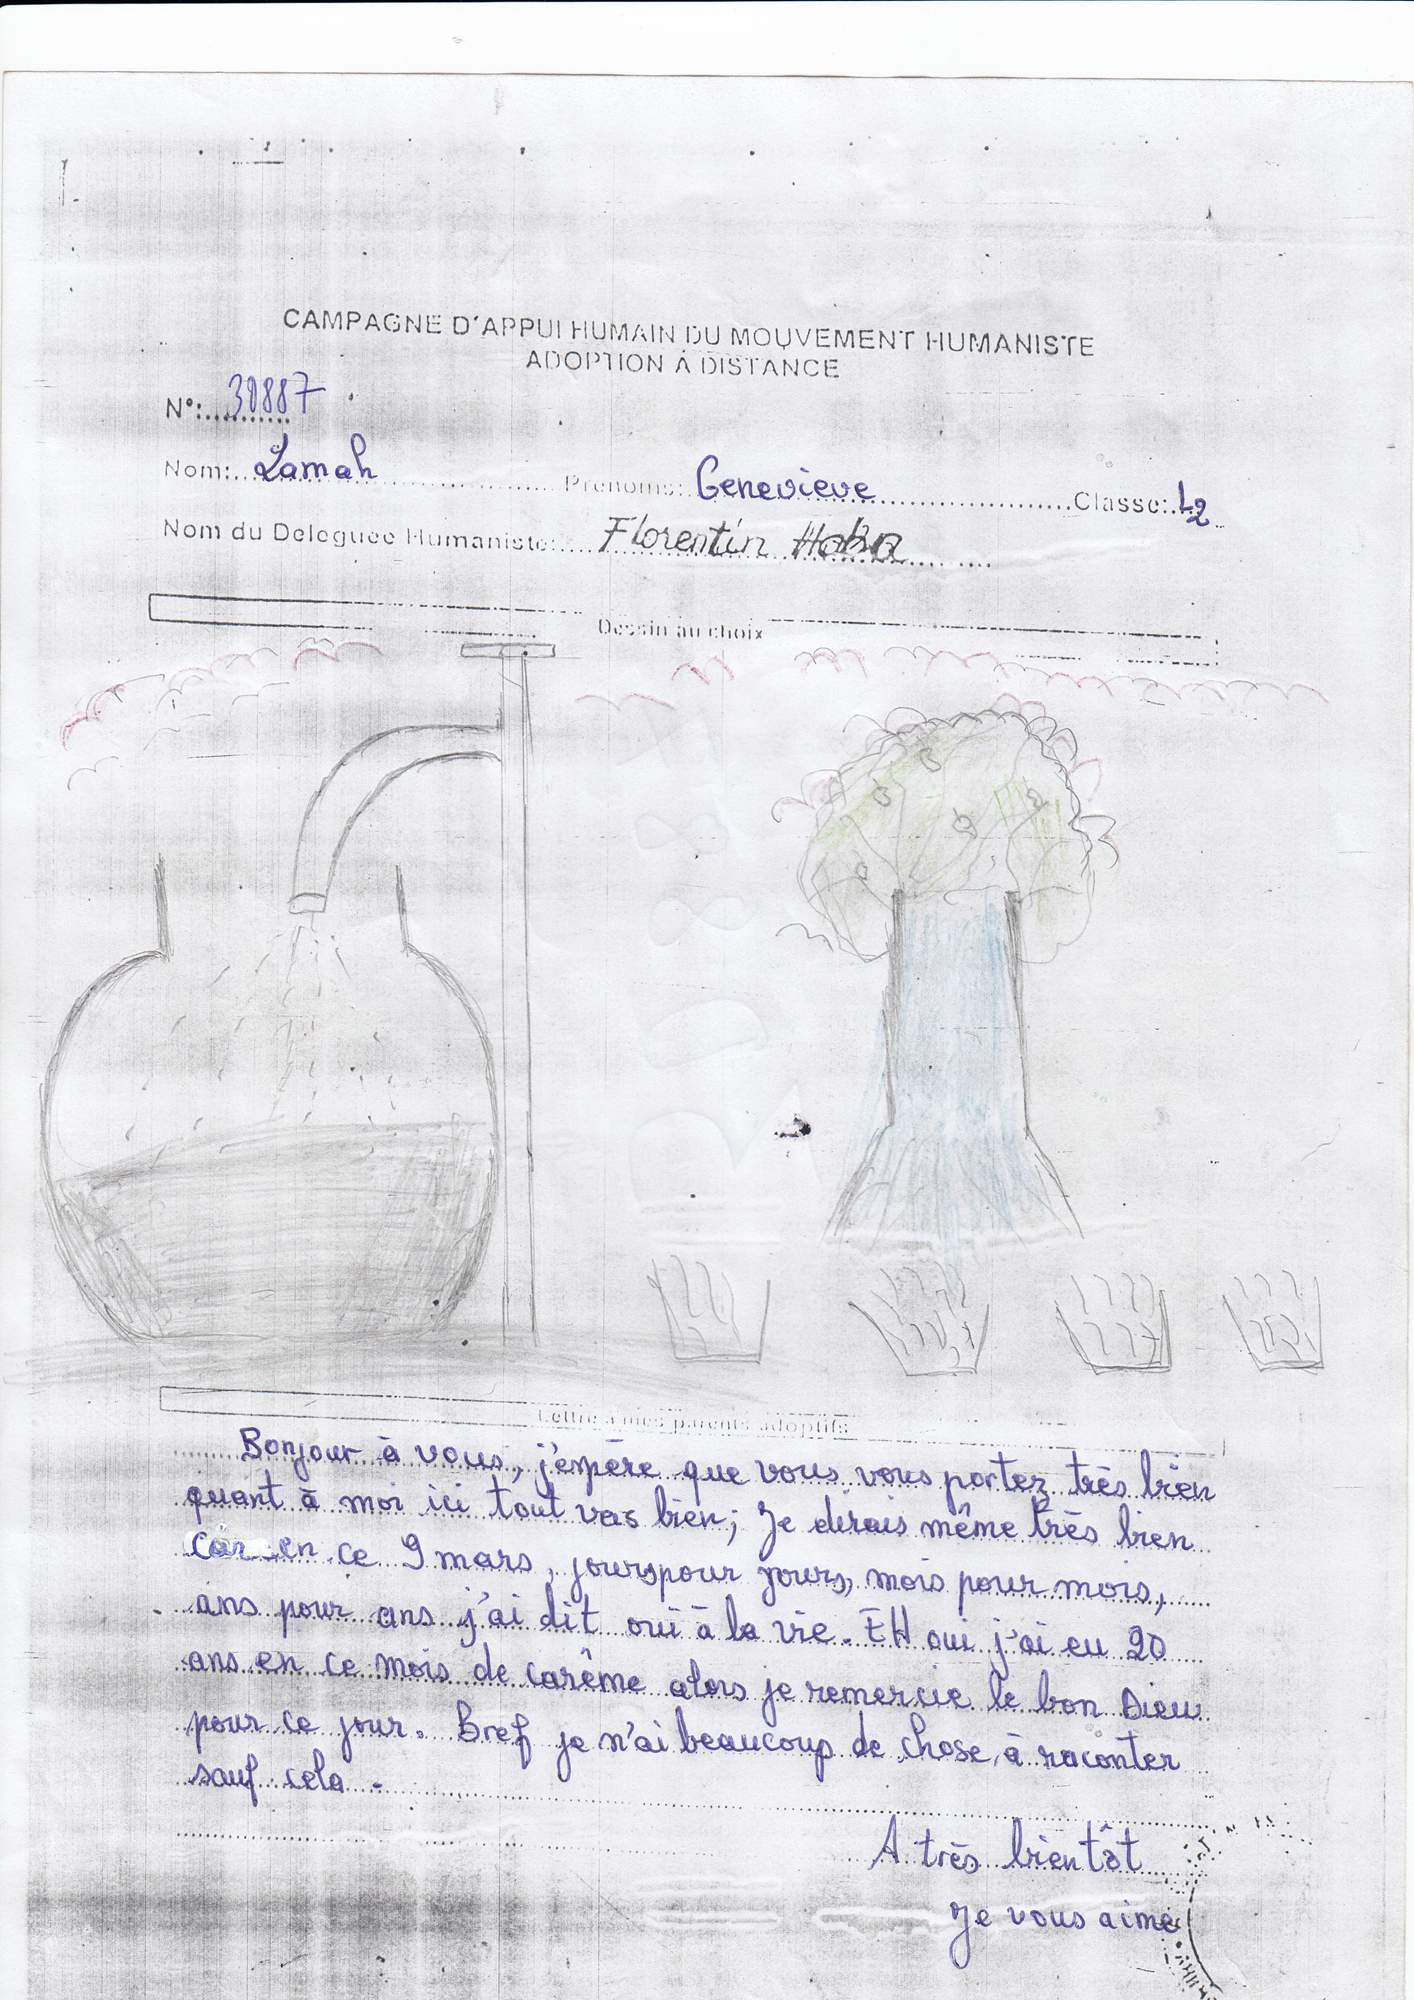 CAMPAGNE D'APPUI HUMAIN DU MOUVEMENT HUMANISTE
ADOPTION A DISTANCE
N°: 30887
Nom: Lamah Prénoms: Genevieve Classe: L2
Nom du Deleguee Humaniste: Florentin Haba
Dessin au choix
Lettre à mes parents adoptifs
Bonjour à vous, j'espère que vous vous portez très bien
quant à moi ici tout vas bien; Je dirais même très bien
car en ce 9 mars, jours pour jours, mois pour mois,
ans pour ans j'ai dit oui à la vie. EH oui j'ai eu 20
ans en ce mois de carême alors je remercie le bon Dieu
pour ce jour. Bref je n'ai beaucoup de chose à raconter
sauf cela.
A très bientôt
Je vous aime